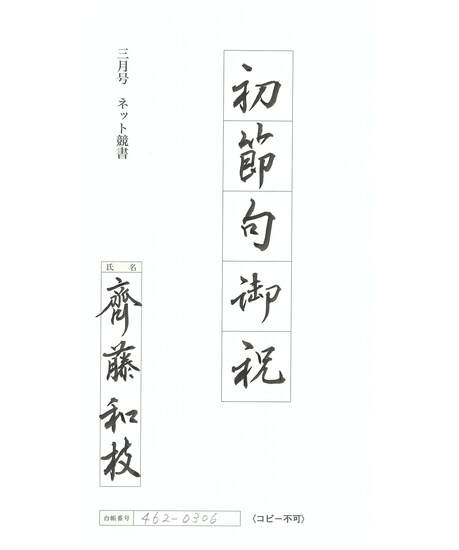 初節句御祝
三月号 ネット競書
氏名
齊藤和枝
台帳番号 462-0306
〈コピー不可〉